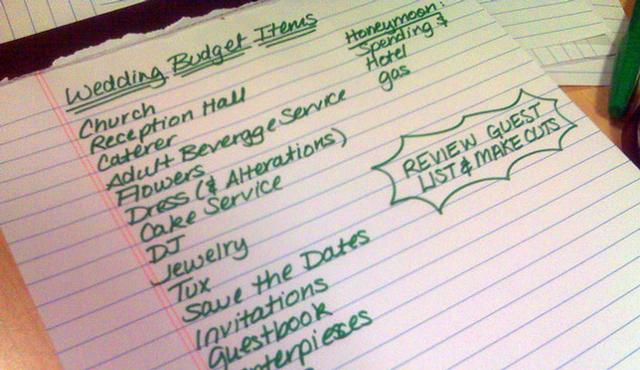 Wedding Budget Items
Church
Reception Hall
Caterer
Adult Beverage Service
Flowers
Dress (& Alterations)
Cake Service
DJ
Jewelry
Tux
Save the Dates
Invitations
Guestbook
Honeymoon:
Spending &
Hotel
gas
REVIEW GUEST
LIST & MAKE CUTS